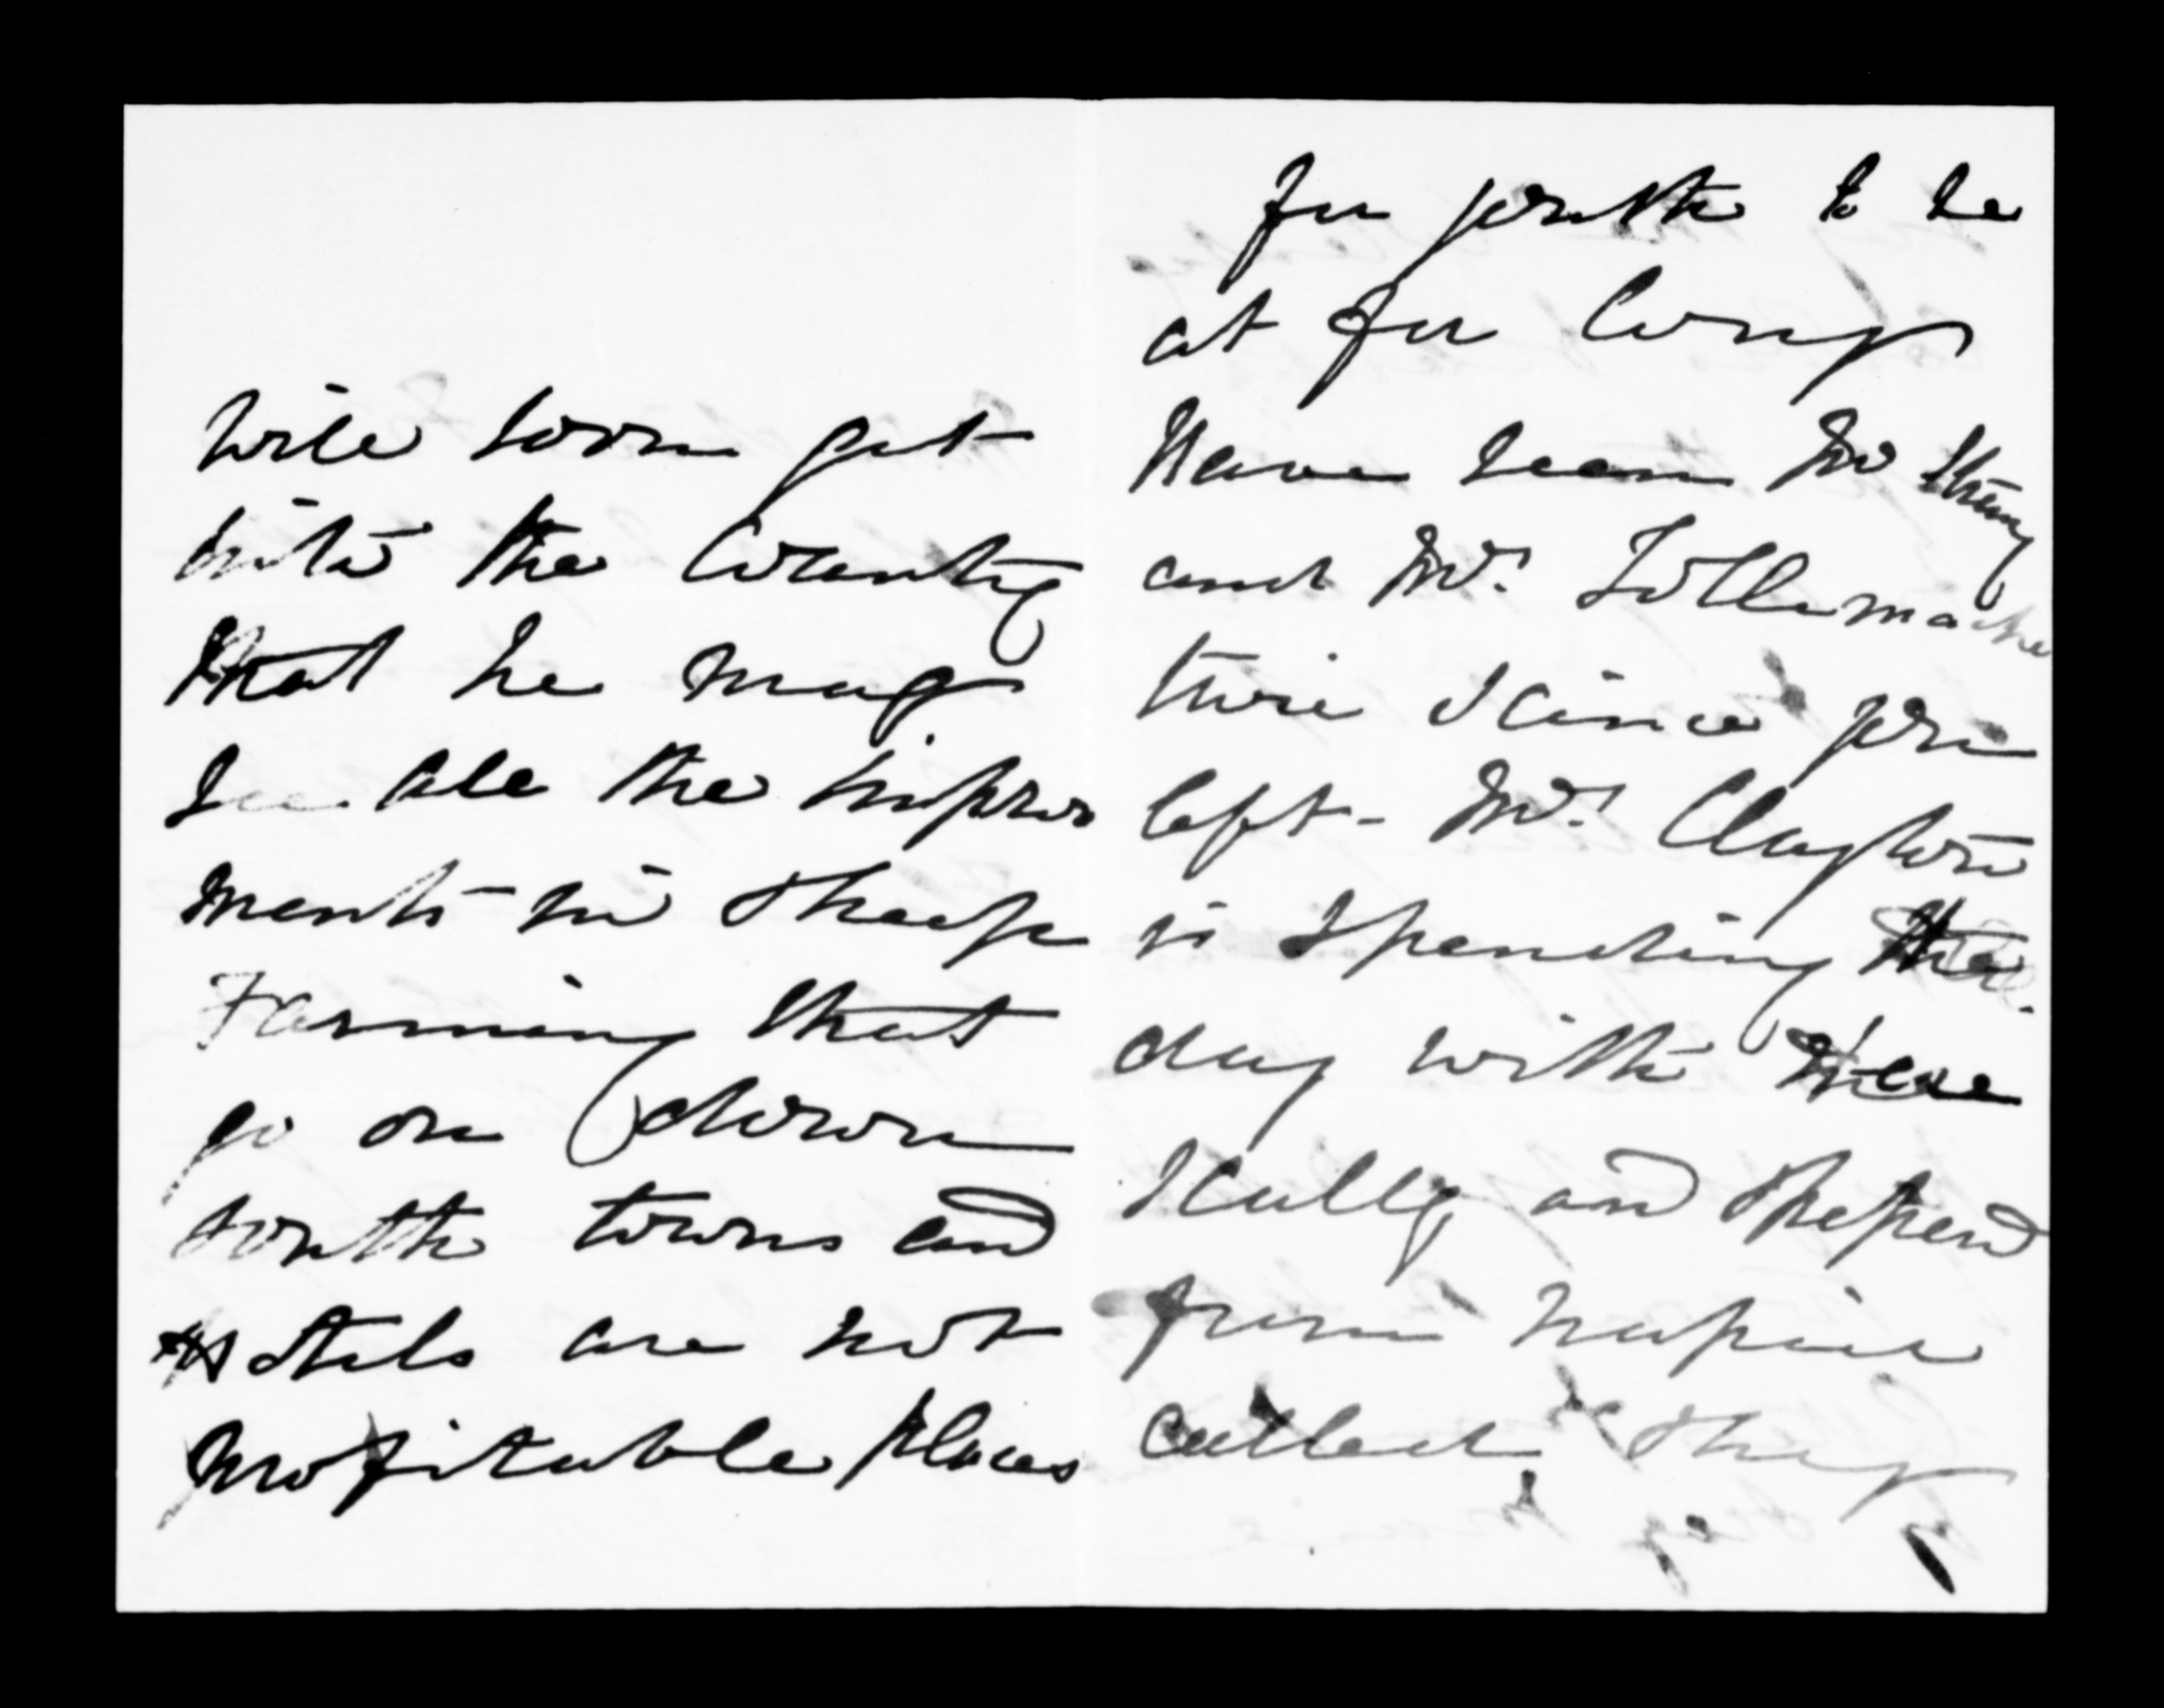 will soon get
into the Country
that he may
see all the improve
ments in Sheep
Farming that
go on down
South towns and
Hotels are not
profitable places
for youth to be
at for Long
Have seen Mr
and Mrs Tollemache
twice since you
left - Mrs Clayton
is spending the
day with
Scully and Shepherd
from Napier
called they